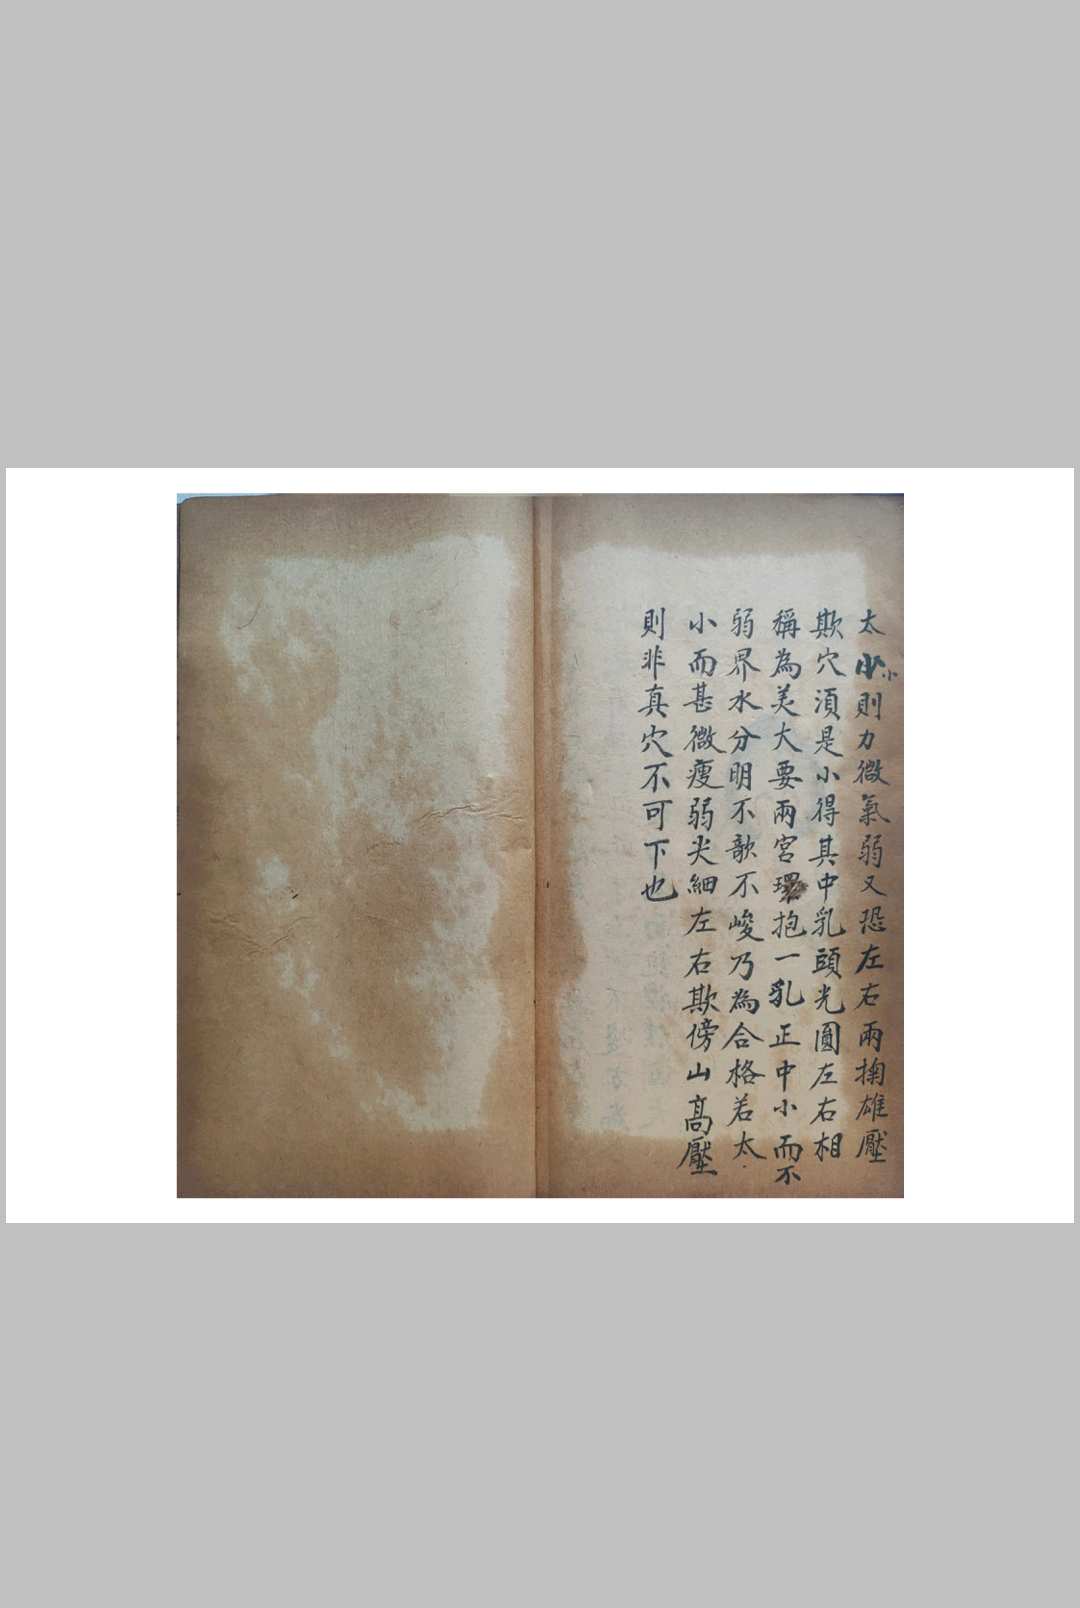 太小小則力微氣弱又恐左右兩掬雄壓
欺穴須是小得其中乳頭光圓左右相
稱為美大要兩宮環抱一乳正中小而不
弱界水分明不歆不峻乃為合格若太
小而甚微瘦弱尖細左右欺傍山高壓
則非真穴不可下也